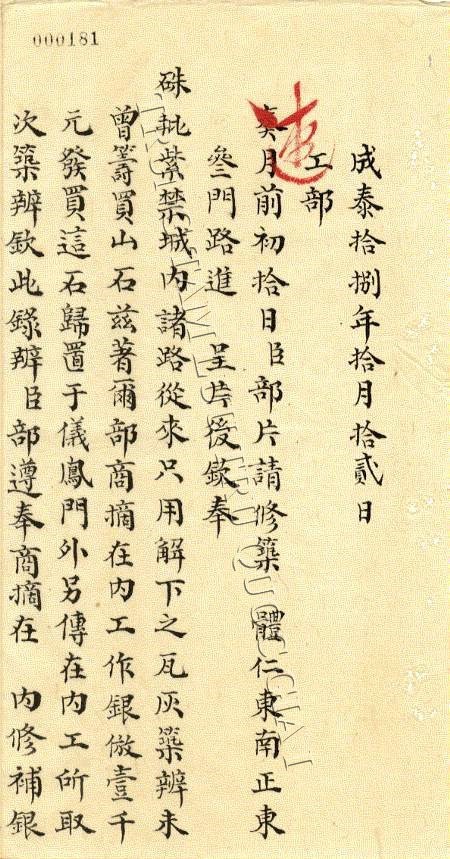 000181
成泰拾捌年拾月拾貳日
速
工部
奏月前初拾日臣部片請修築 體仁東南正東
叄門路進 呈片復欽奉
硃批紫禁城內諸路從來只用解下之瓦灰築辦未
曾籌買山石茲著爾部商摘在內工作銀倣壹千
元發買這石歸置于儀鳳門外另傳在內工所取
次築辦欽此錄辦臣部遵奉商摘在 內修補銀